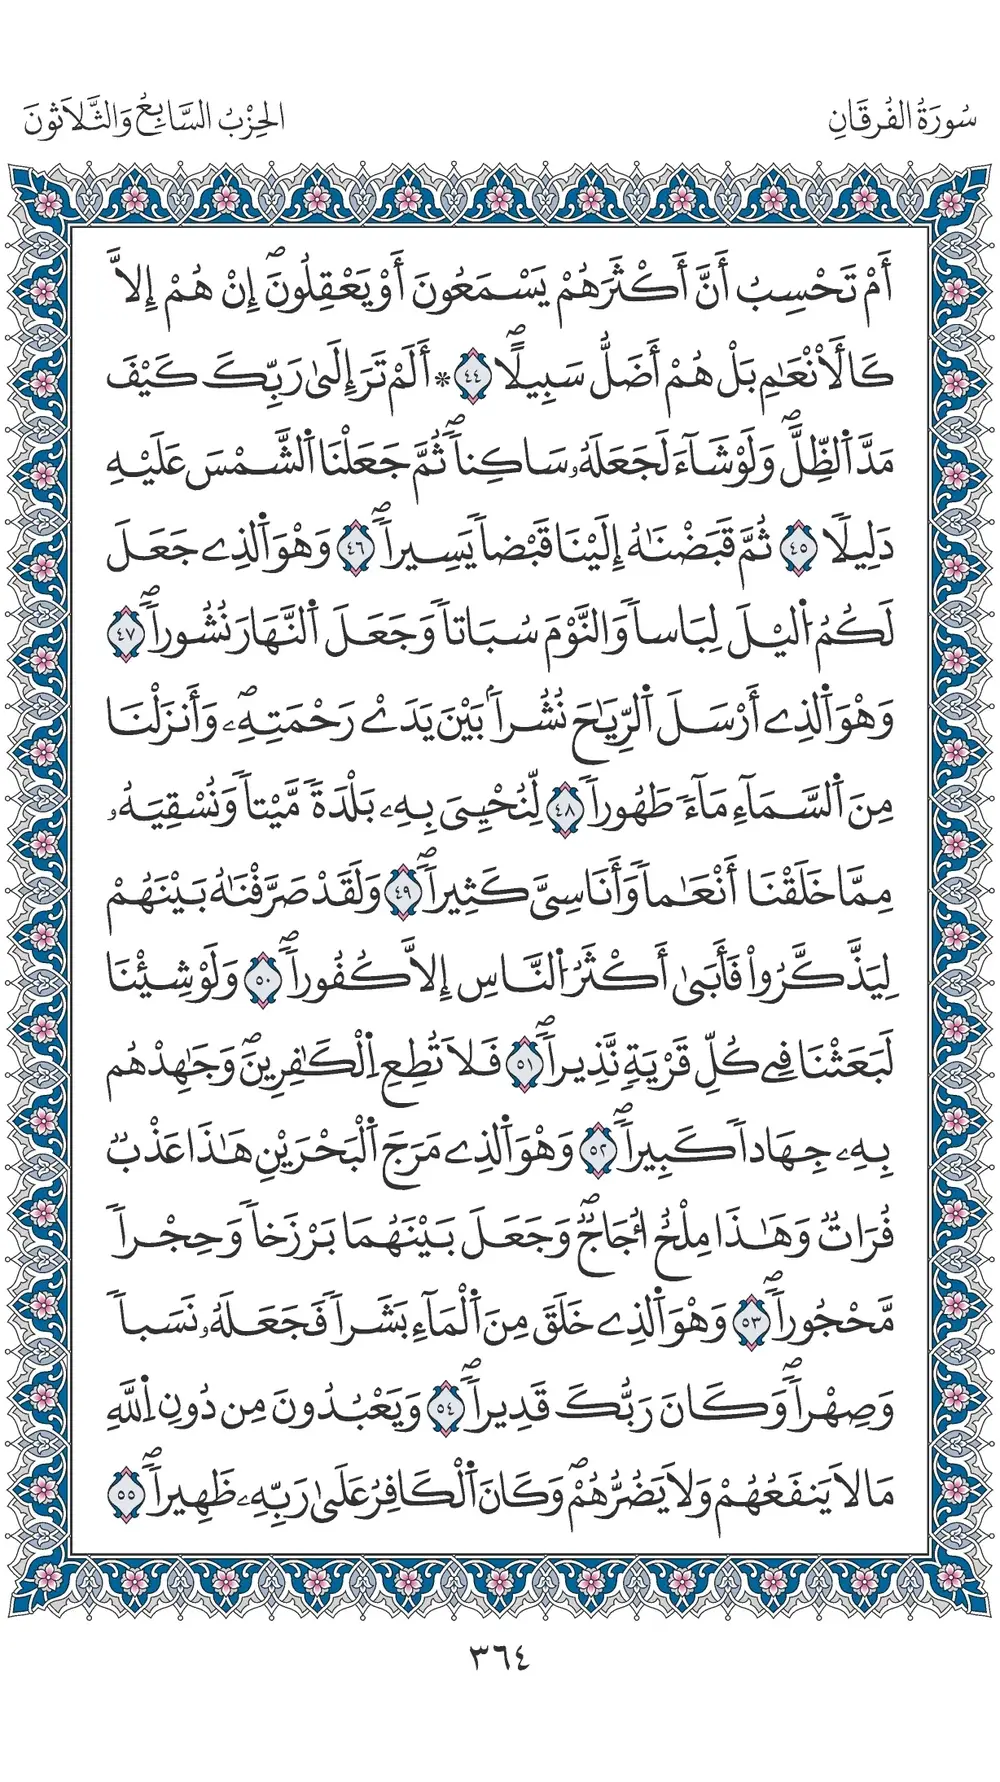 سُورَةُ الفُرْقَانِ
الحِزْبُ السَّابِعُ وَالثَّلَاثُونَ
أَمْ تَحْسِبُ أَنَّ أَكْثَرَهُمْ يَسْمَعُونَ أَوْ يَعْقِلُونَۖ إِنْ هُمْ إِلاَّ
كَالَانْعَٰمِ بَلْ هُمْ أَضَلُّ سَبِيلًاۖ ٤٤ * أَلَمْ تَرَ إِلَىٰ رَبِّكَ كَيْفَ
مَدَّ اَ۬لظِّلَّۖ وَلَوْ شَآءَ لَجَعَلَهُۥ سَاكِناٗۖ ثُمَّ جَعَلْنَا اَ۬لشَّمْسَ عَلَيْهِ
دَلِيلًا ٤٥ ثُمَّ قَبَضْنَٰهُ إِلَيْنَا قَبْضاٗ يَسِيراٗۖ ٤٦ وَهْوَ اَ۬لذِے جَعَلَ
لَكُمُ اُ۬ليْلَ لِبَاساٗ وَالنَّوْمَ سُبَاتاٗ وَجَعَلَ اَ۬لنَّهَارَ نُشُوراٗۖ ٤٧
وَهْوَ اَ۬لذِے أَرْسَلَ اَ۬لرِّيَٰحَ نُشُراَۢ بَيْنَ يَدَےْ رَحْمَتِهِۦۖ وَأَنزَلْنَا
مِنَ اَ۬لسَّمَآءِ مَآءٗ طَهُوراٗ ٤٨ لِّنُحْيِيَ بِهِۦ بَلْدَةٗ مَّيْتاٗ وَنُسْقِيَهُۥ
مِمَّا خَلَقْنَا أَنْعَٰماٗ وَأَنَاسِيَّ كَثِيراٗۖ ٤٩ وَلَقَدْ صَرَّفْنَٰهُ بَيْنَهُمْ
لِيَذَّكَّرُواْ فَأَبَىٰ أَكْثَرُ اُ۬لنَّاسِ إِلاَّ كُفُوراٗۖ ٥٠ وَلَوْ شِئْنَا
لَبَعَثْنَا فِے كُلِّ قَرْيَةٖ نَّذِيراٗۖ ٥١ فَلَا تُطِعِ اِ۬لْكَٰفِرِينَۖ وَجَٰهِدْهُم
بِهِۦ جِهَاداٗ كَبِيراٗۖ ٥٢ وَهْوَ اَ۬لذِے مَرَجَ اَ۬لْبَحْرَيْنِ هَٰذَا عَذْبٞ
فُرَاتٞ وَهَٰذَا مِلْحٌ اُجَاجٞۖ وَجَعَلَ بَيْنَهُمَا بَرْزَخاٗ وَحِجْراٗ
مَّحْجُوراٗۖ ٥٣ وَهْوَ اَ۬لذِے خَلَقَ مِنَ اَ۬لْمَآءِ بَشَراٗ فَجَعَلَهُۥ نَسَباٗ
وَصِهْراٗۖ وَكَانَ رَبُّكَ قَدِيراٗۖ ٥٤ وَيَعْبُدُونَ مِن دُونِ اِ۬للَّهِ
مَا لَا يَنفَعُهُمْ وَلَا يَضُرُّهُمْۖ وَكَانَ اَ۬لْكَافِرُ عَلَىٰ رَبِّهِۦ ظَهِيراٗۖ ٥٥
٣٦٤